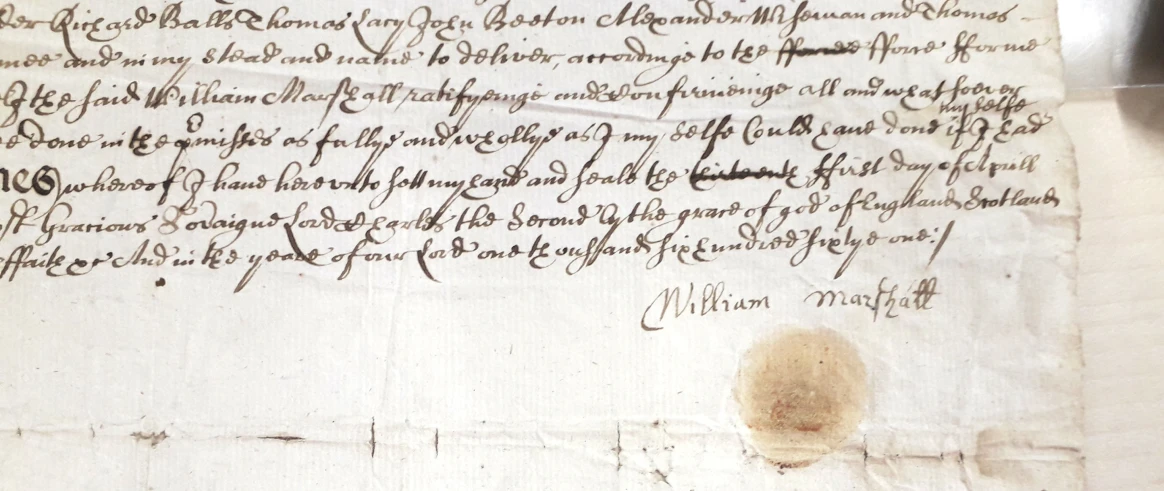 der Richard Balls Thomas Lacy John Beeton Alexander Wiseman and Thomas
mee and in my stead and name to deliver, accordinge to the fforce fforme
I the said William Marshall ratifyeinge and Confirmeinge all and whatsoever
e done in the p̄misses as fullye and whollye as I my selfe Could have done if I my selfe had
nes whereof I have herevnto sett my hand and seale the thirteenth ffirst day of Aprill
st Gracious Soveraigne Lord Charles the Second by the grace of god of England Scotland
ffaith &c And in the yeare of our Lord one thoussand six hundred sixtye one:/
William Marshall